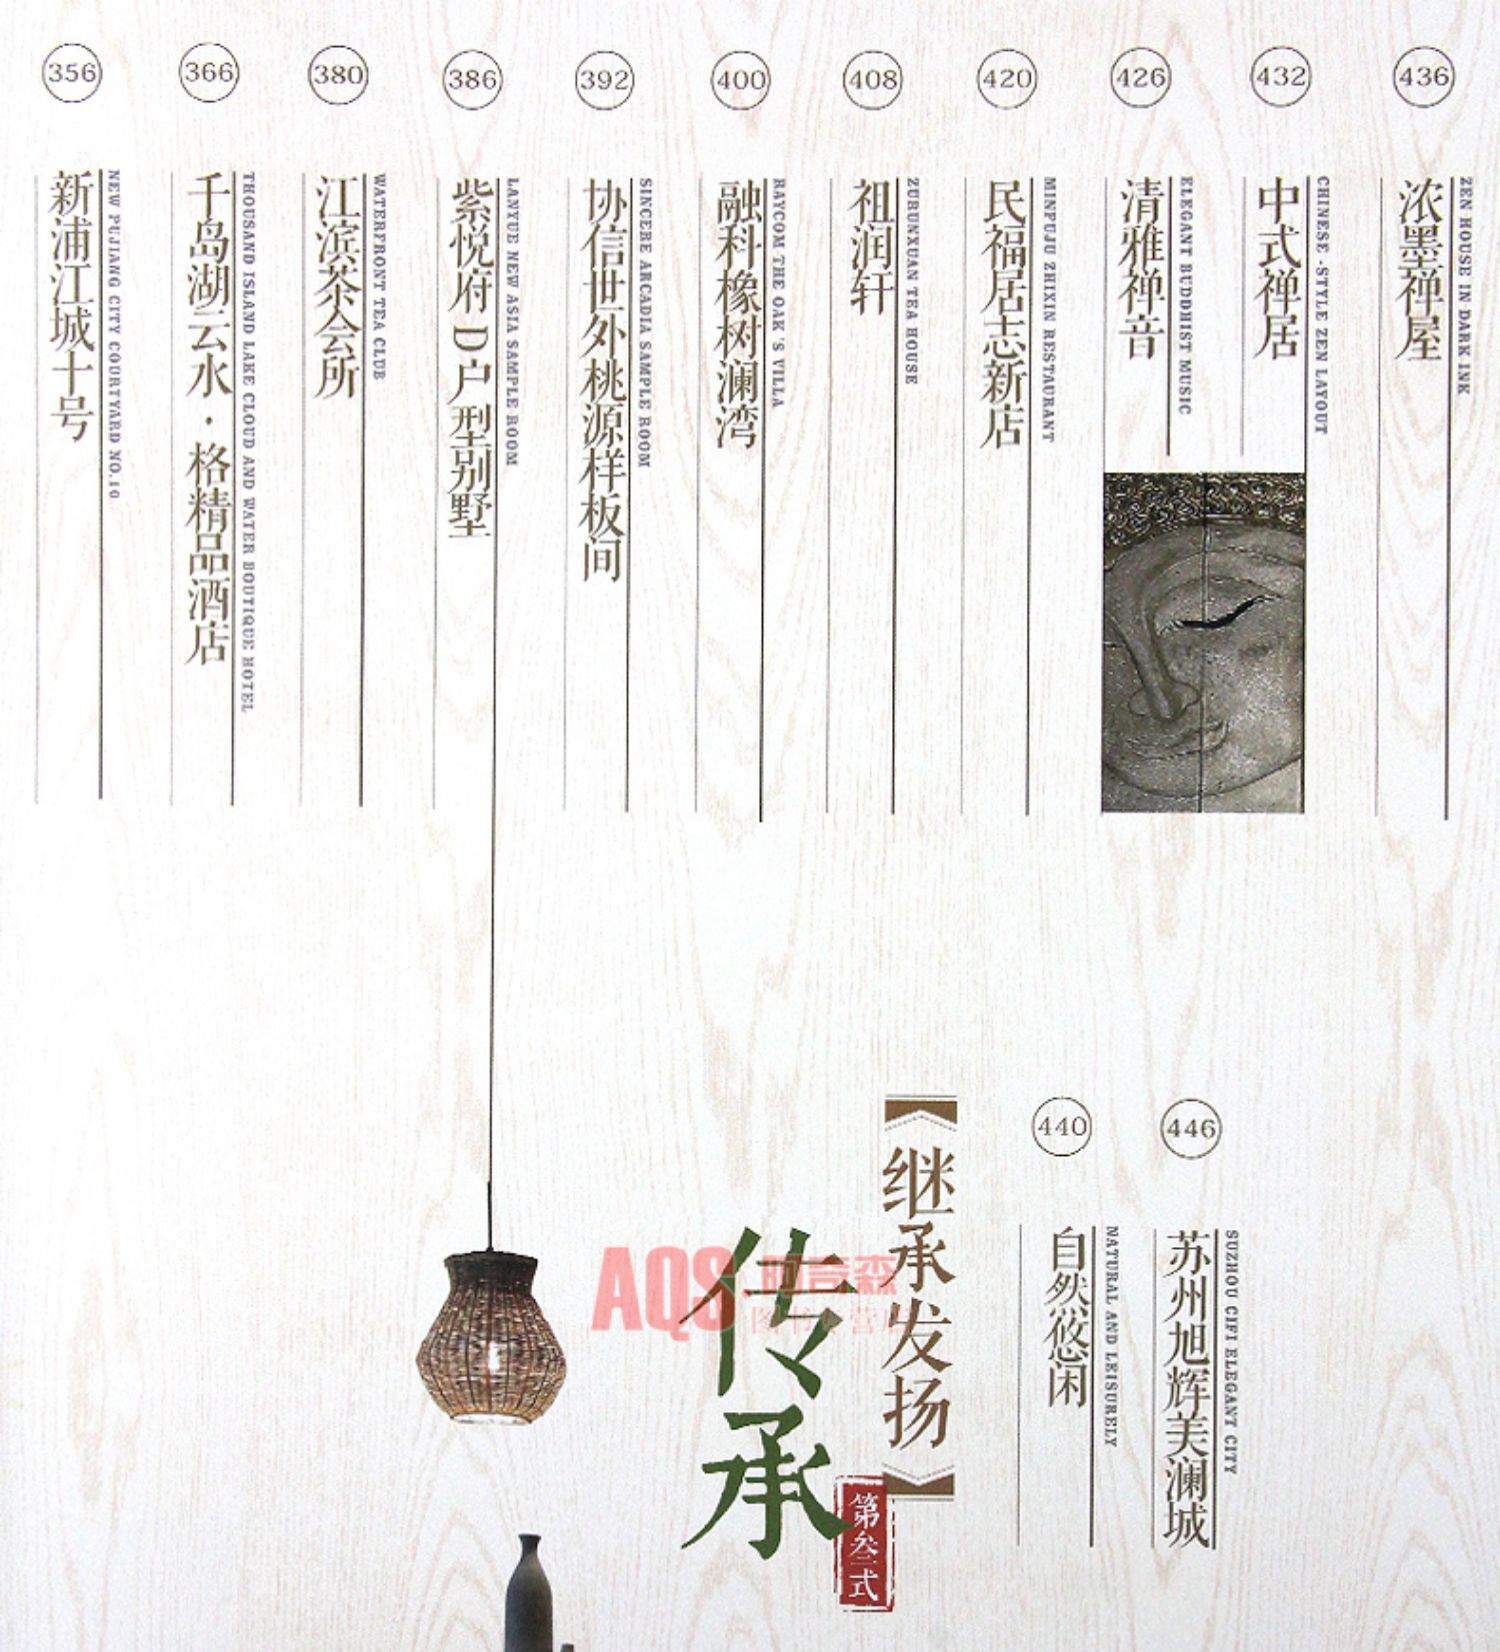 356
新浦江城十号
NEW PUJIANG CITY COURTYARD NO.10
366
千岛湖云水·格精品酒店
THOUSAND ISLAND LAKE CLOUD AND WATER BOUTIQUE HOTEL
380
江滨茶会所
WATERFRONT TEA CLUB
386
紫悦府D户型别墅
LANYUE NEW ASIA SAMPLE ROOM
392
协信世外桃源样板间
SINCERE ARCADIA SAMPLE ROOM
400
融科橡树澜湾
RAYCOM THE OAK'S VILLA
408
祖润轩
ZURUNXUAN TEA HOUSE
420
民福居志新店
MINFUJU ZHIXIN RESTAURANT
426
清雅禅音
ELEGANT BUDDHIST MUSIC
432
中式禅居
CHINESE -STYLE ZEN LAYOUT
436
浓墨禅屋
ZEN HOUSE IN DARK INK
传承
第叁式
继承发扬
440
自然悠闲
NATURAL AND LEISURELY
446
苏州旭辉美澜城
SUZHOU CIFI ELEGANT CITY
AQS